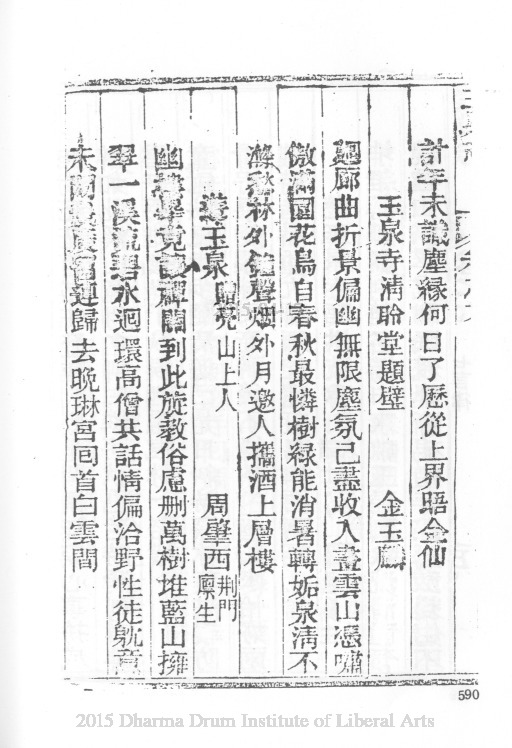 計年未識塵緣何日了歷從上界晤金仙
玉泉寺淸聆堂題壁 金玉麟
廊曲折景偏幽無限塵氛己盡收入畫雲山憑嘯
傲滿園花鳥自春秋最憐樹綠能消暑轉妬泉淸不
林外聲烟外月邀人擕酒上層樓
玉泉贈亮山上人 周肇西荆門廩生
幽禪關到此旋敎俗慮刪萬樹堆藍山擁
翠一溪流碧水迴環高僧共話情偏洽野性徒躭意
未遲歸去晚琳宮囘首白雲間
590
2015 Dharma Drum Institute of Liberal Arts